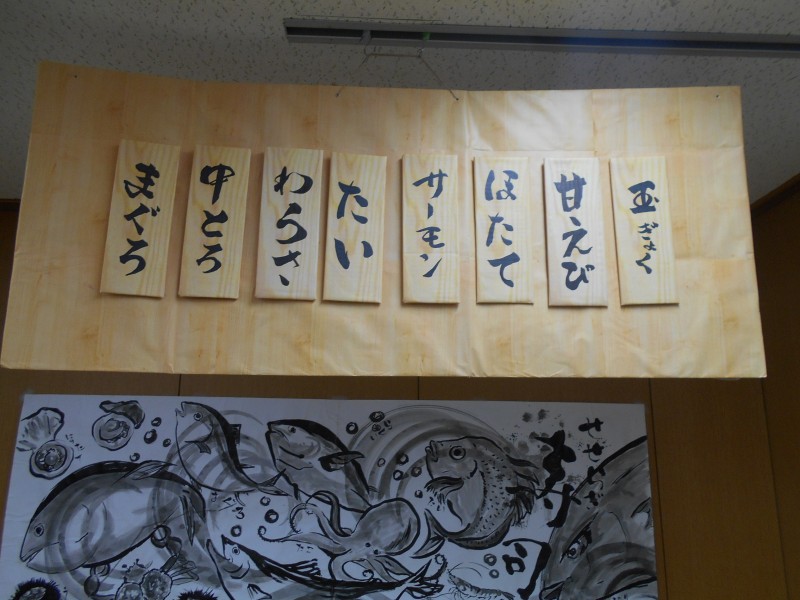 玉ぎょく
甘えび
ほたて
サーモン
たい
わらさ
中とろ
まぐろ
寿司